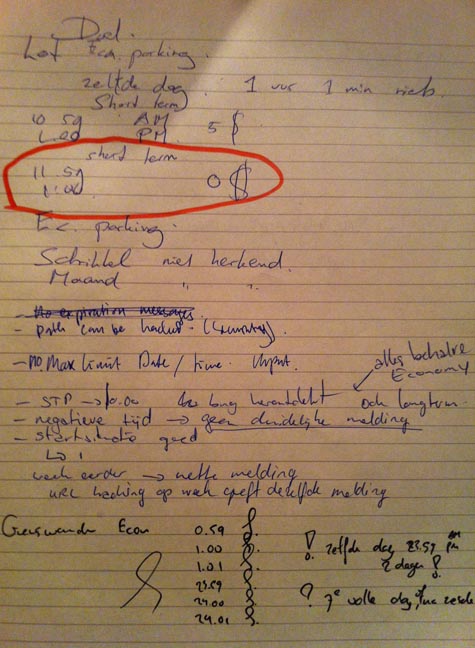 Doel.
Lot Ec. parking.
zelfde dag. 1 uur 1 min niets.
Short term
10 59 AM 5 $
1.00 PM
short term
11 59 0 $
1.00
Ec. parking.
Schrikkel niet herkend.
Maand " "
- No expiration messages
- path can be hacked - (Security).
- no Max limit Date / time. Input.
alles behalve Economy
- STP → 10.00 bug ook longterm.
- negatieve tijd → geen duidelijke melding
- startsituatie goed
↳ 1
week eerder → nette melding
URL hacking op week geeft dezelfde melding
Econ 0.59
1.00
1.01
23.59
24.00
24.01
! zelfde dag 23.59 pm
2 dagen !
? 7e volle dag,